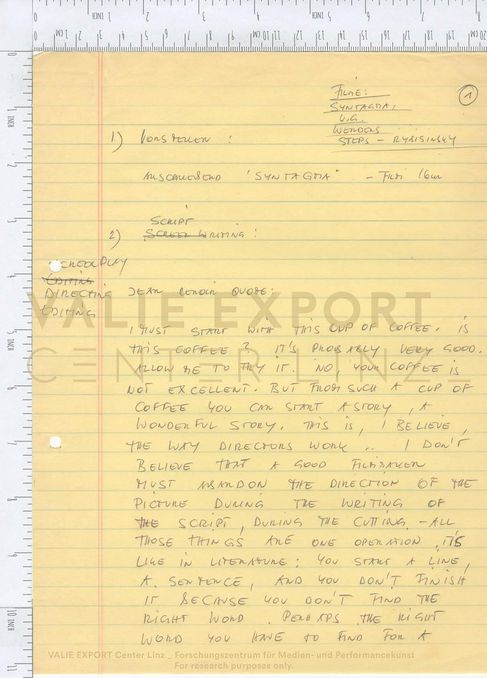 FILME:
SYNTAGMA,
U.G.
STEPS - RYBISINSKY
1
1) VORSTELLEN :
ANSCHLIESSEND "SYNTAGMA" - FILM 16mm
SCRIPT
2) SCREEN WRITING :
SCREENPLAY
EDITING
DIRECTING
EDITING
JEAN RENOIR QUOTE:
I MUST START WITH THIS CUP OF COFFEE. IS
THIS COFFEE? IT'S PROBABLY VERY GOOD.
ALLOW ME TO TRY IT. NO, YOUR COFFEE IS
NOT EXCELLENT. BUT FROM SUCH A CUP OF
COFFEE YOU CAN START A STORY, A
WONDERFUL STORY. THIS IS, I BELIEVE,
THE WAY DIRECTORS WORK... I DON'T
BELIEVE THAT A GOOD FILMMAKER
MUST ABANDON THE DIRECTION OF THE
PICTURE DURING THE WRITING OF
THE SCRIPT, DURING THE CUTTING - ALL
THOSE THINGS ARE ONE OPERATION, IT'S
LIKE IN LITERATURE: YOU START A LINE,
A SENTENCE, AND YOU DON'T FINISH
IT BECAUSE YOU DON'T FIND THE
RIGHT WORD. PERHAPS THE RIGHT
WORD YOU HAVE TO FIND FOR A
VALIE EXPORT
CENTER LINZ
VALIE EXPORT Center Linz _ Forschungszentrum für Medien- und Performancekunst
For research purposes only.